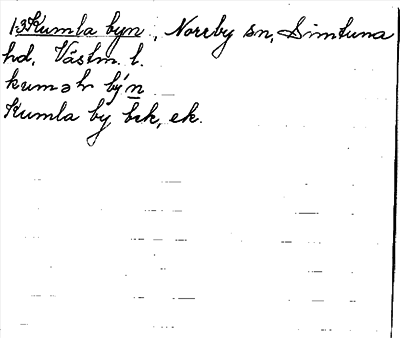 1-3 Kumla byn, Norrby sn, Simtuna
hd, Västm. l.
býn
Kumla by brk, ek.